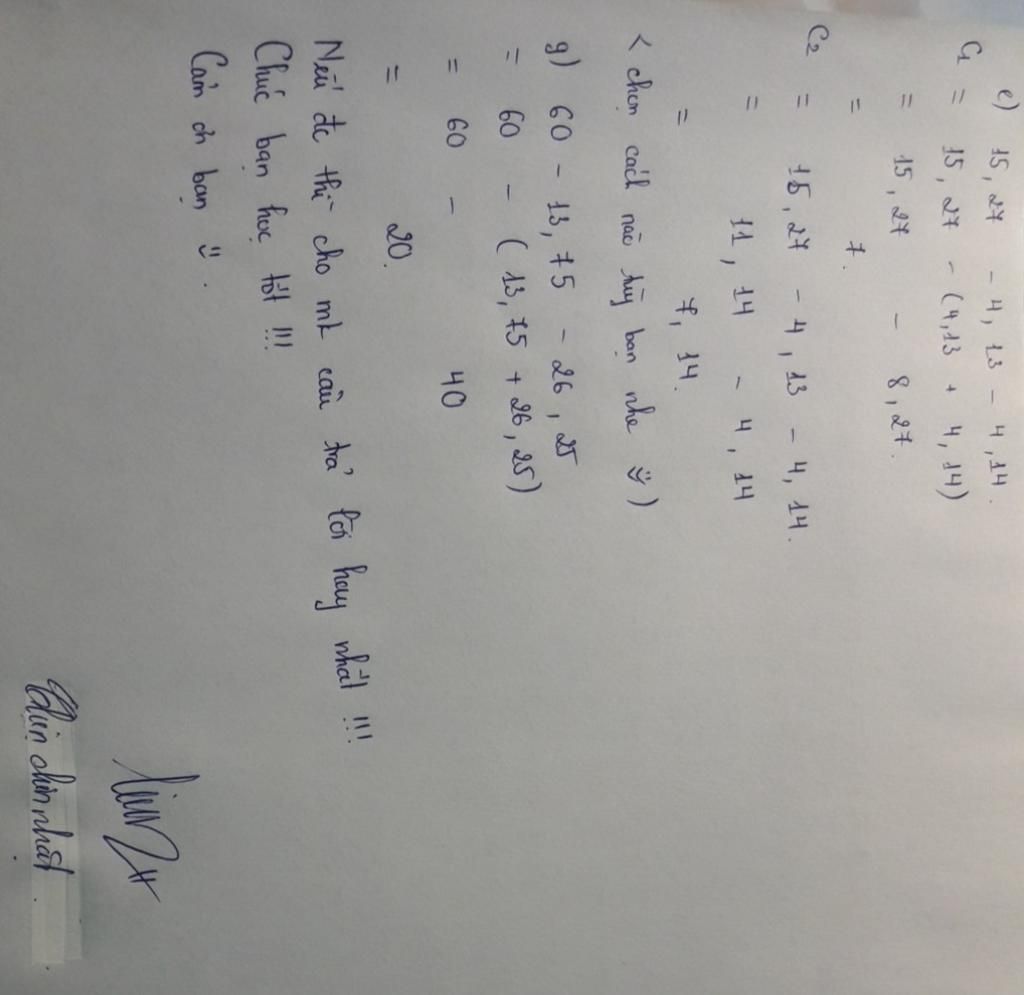 e) 15,27 - 4,13 - 4,14.
C1 = 15,27 - (4,13 + 4,14)
= 15,27 - 8,27.
= 7.
C2 = 15,27 - 4,13 - 4,14.
= 11,14 - 4,14
= 7,14.
< chọn cách nào tùy bạn nhe )
g) 60 - 13,75 - 26,25
= 60 - (13,75 + 26,25)
= 60 - 40
= 20.
Nếu đc thì cho mk câu trả lời hay nhất !!!
Chúc bạn học tốt !!!
Cảm ơn bạn